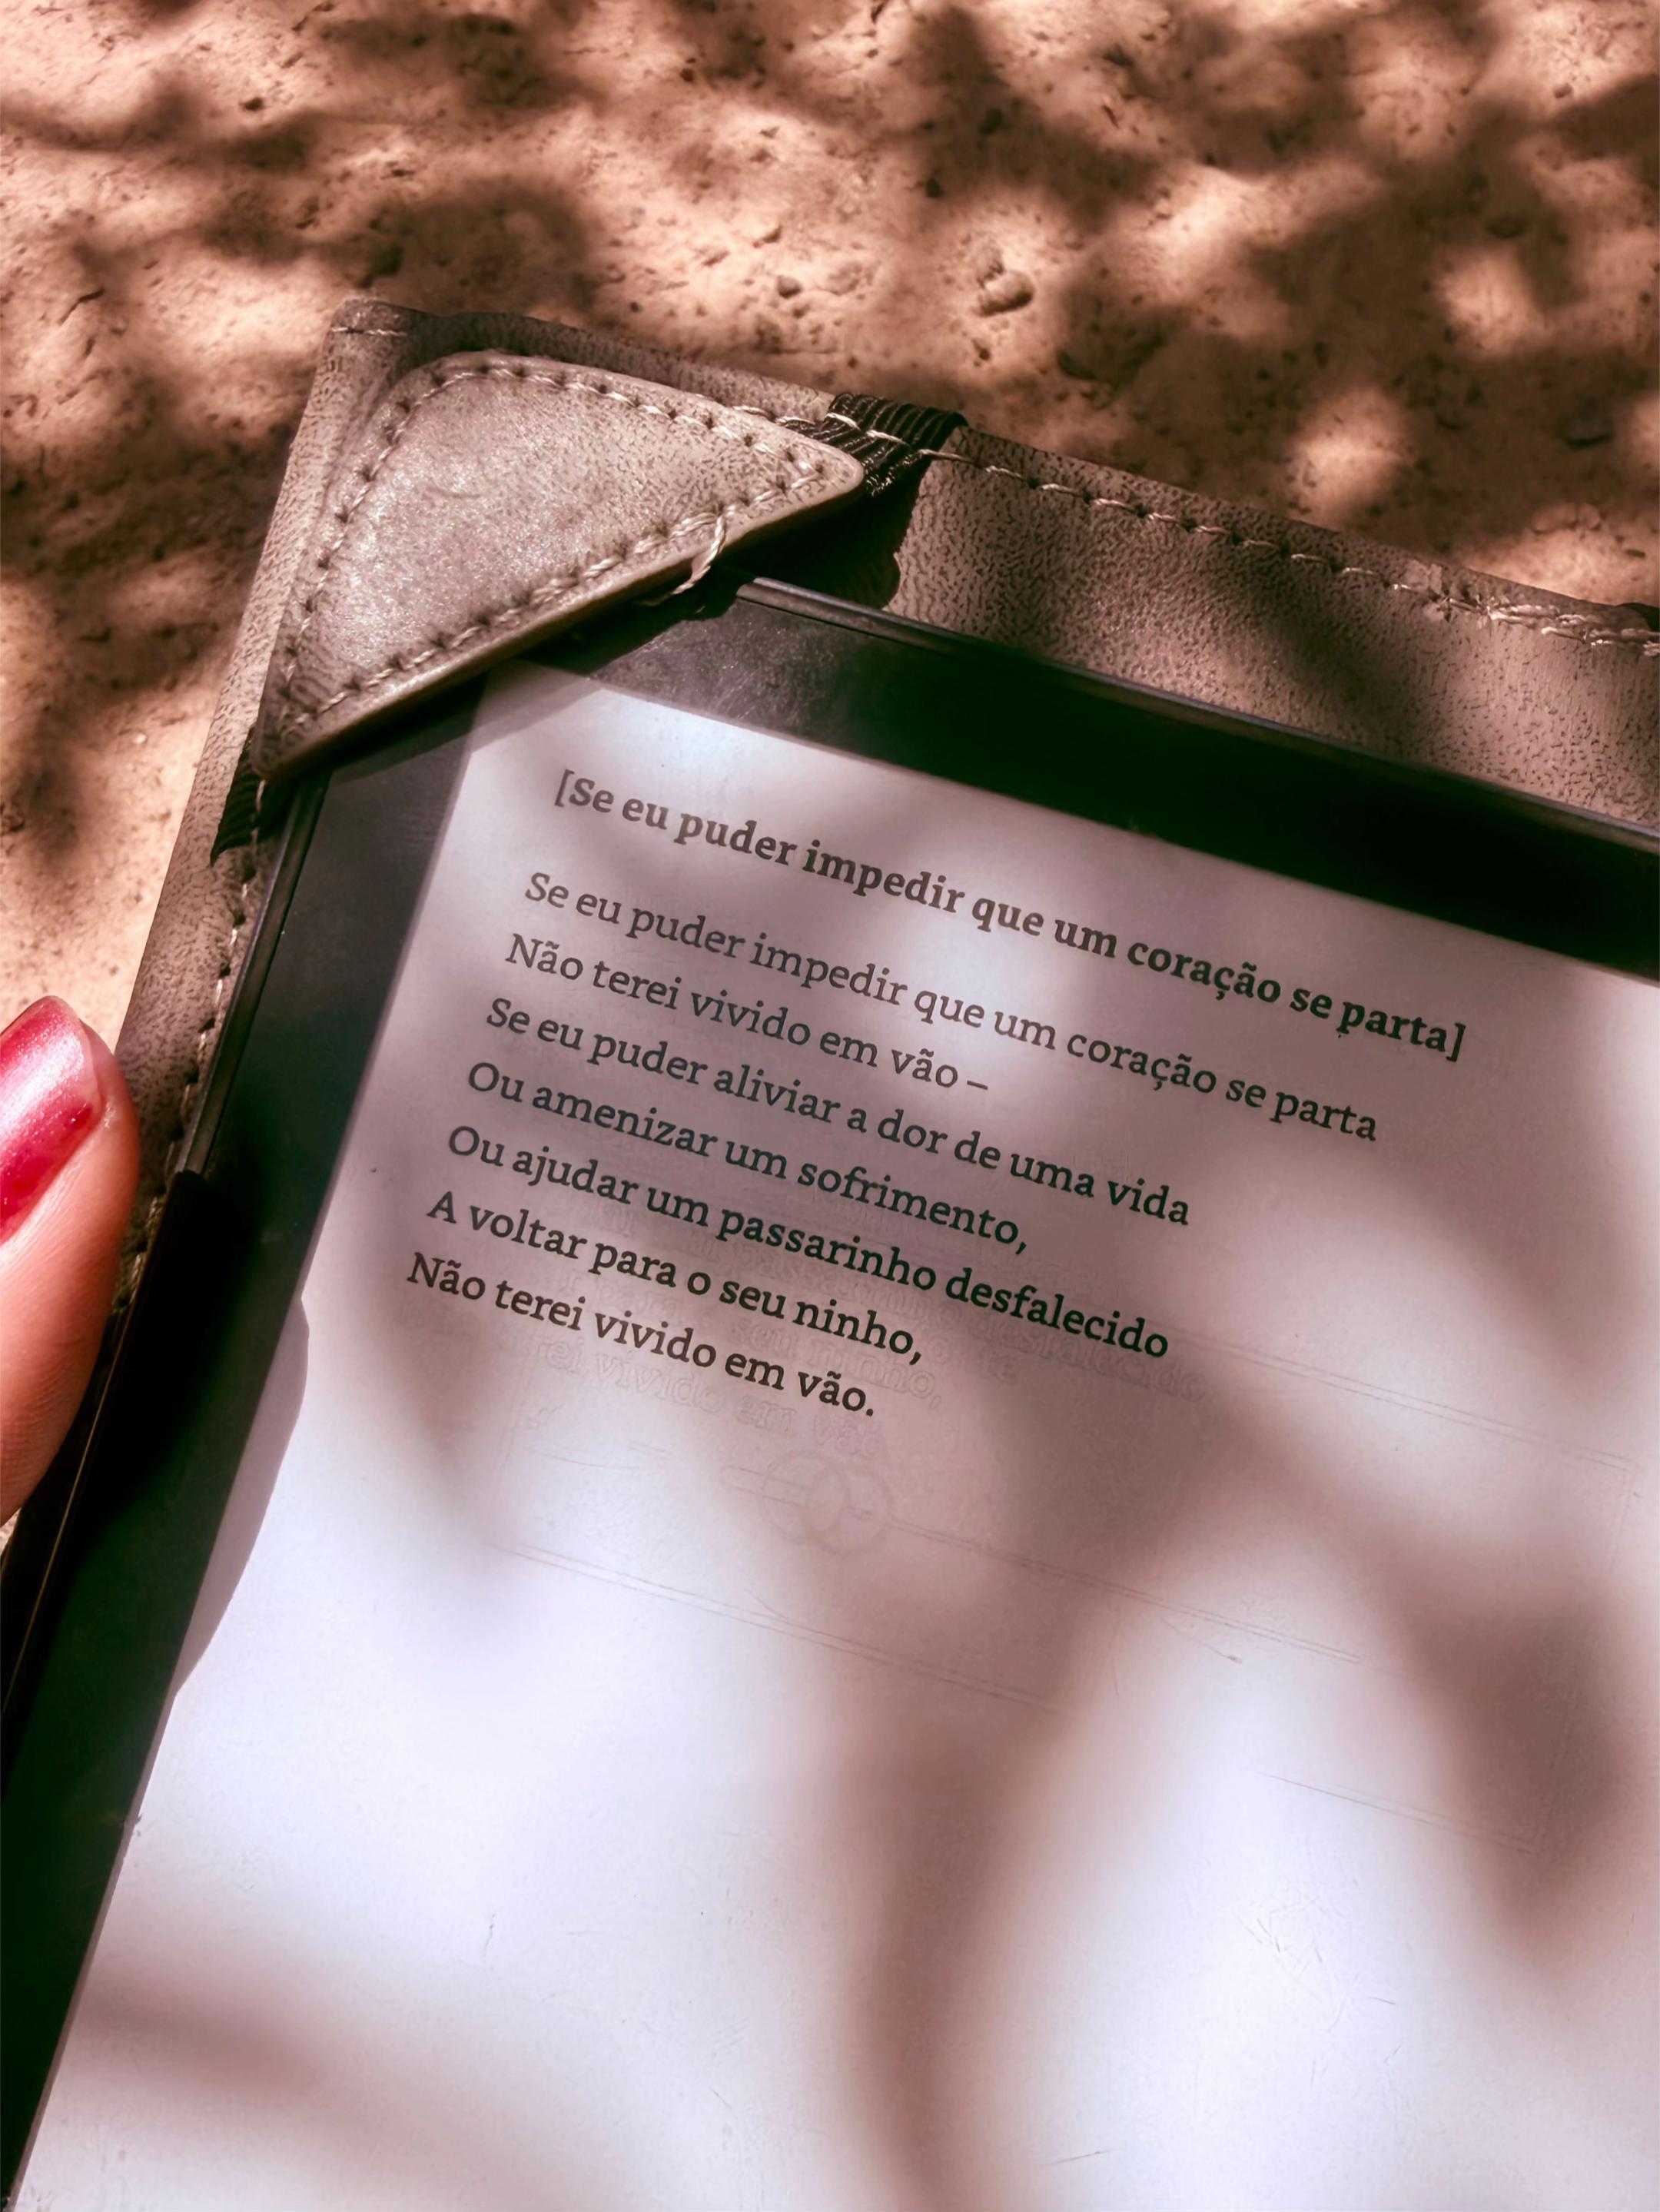 [Se eu puder impedir que um coração se parta]
Se eu puder impedir que um coração se parta
Não terei vivido em vão –
Se eu puder aliviar a dor de uma vida
Ou amenizar um sofrimento,
Ou ajudar um passarinho desfalecido
A voltar para o seu ninho,
Não terei vivido em vão.